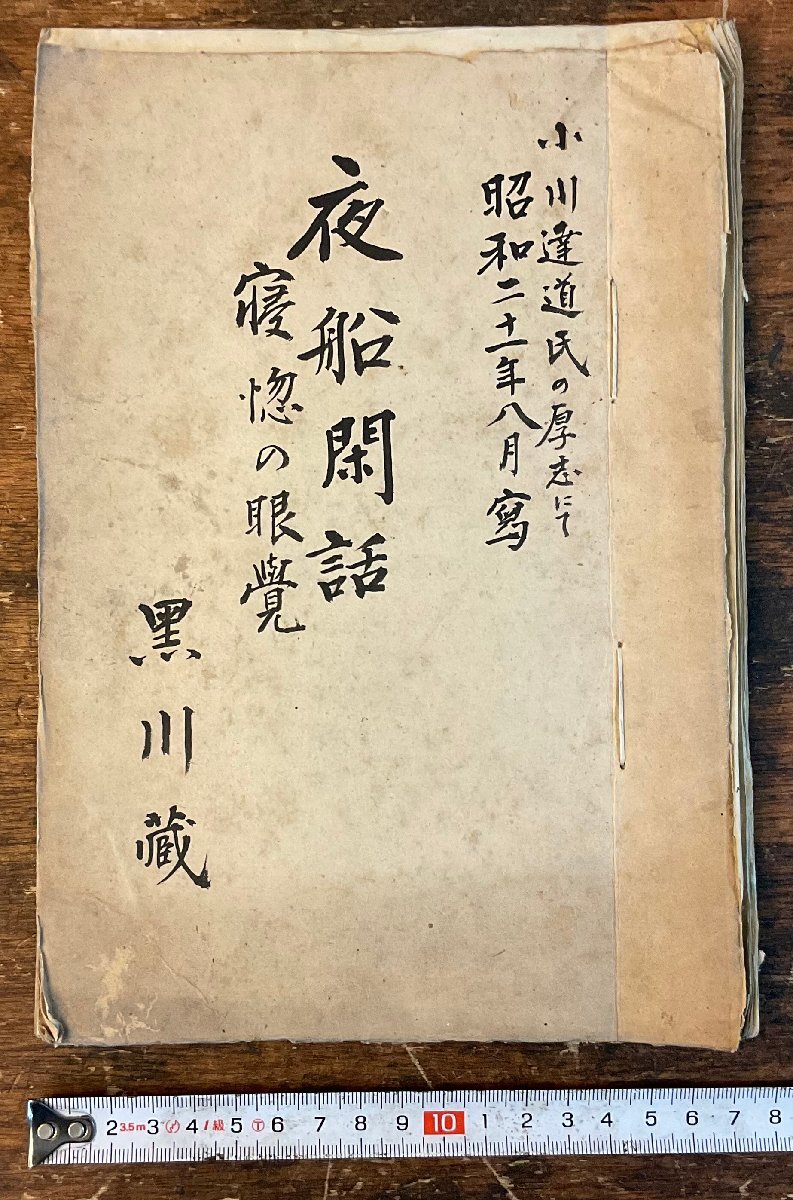 小川達道氏の厚志にて
昭和二十一年八月寫
夜船閑話
寝惚の眼覺
黒川蔵
2 3.5m 3 1級 4 5 T 6 7 8 9 10 1 2 3 4 5 6 7 8